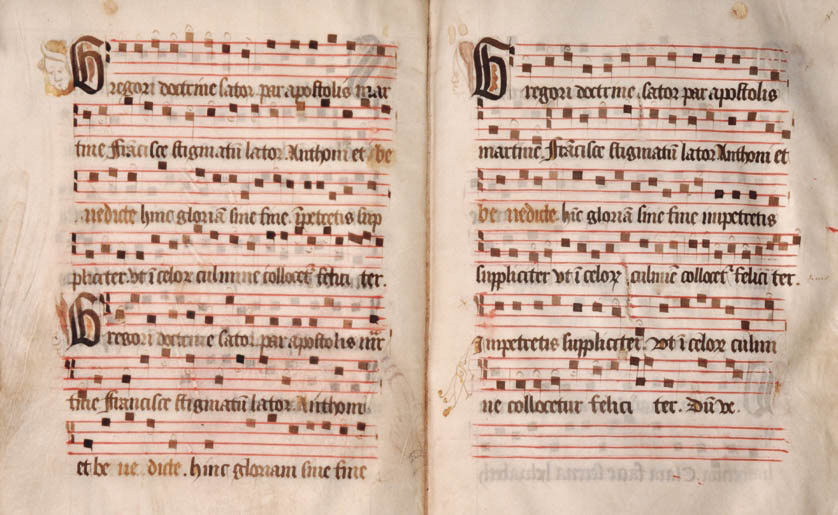 Gregori doctrine sator par apostolis mar
tine Francisce stigmatū lator Anthoni et be
nedicte hinc gloriam sine fine īpetretis sup
pliciter vt ī celoꝝ culmine collocetꝰ felici ter.
Gregori doctrine sator par apostolis mr
tine Francisce stigmatū lator Anthoni
et be ne dicte. hinc gloriam sine fine
Gregori doctrine sator par apostolis
martine Frācisce stigmatū lator Anthoni et
be nedicte hīc gloriā sine fine impetretis
suppliciter Vt ī celoꝝ culmīe collocetꝰ felici ter.
impetretis suppliciter. Vt ī celoꝝ culmi
ne collocetur felici ter. Dūs ve.